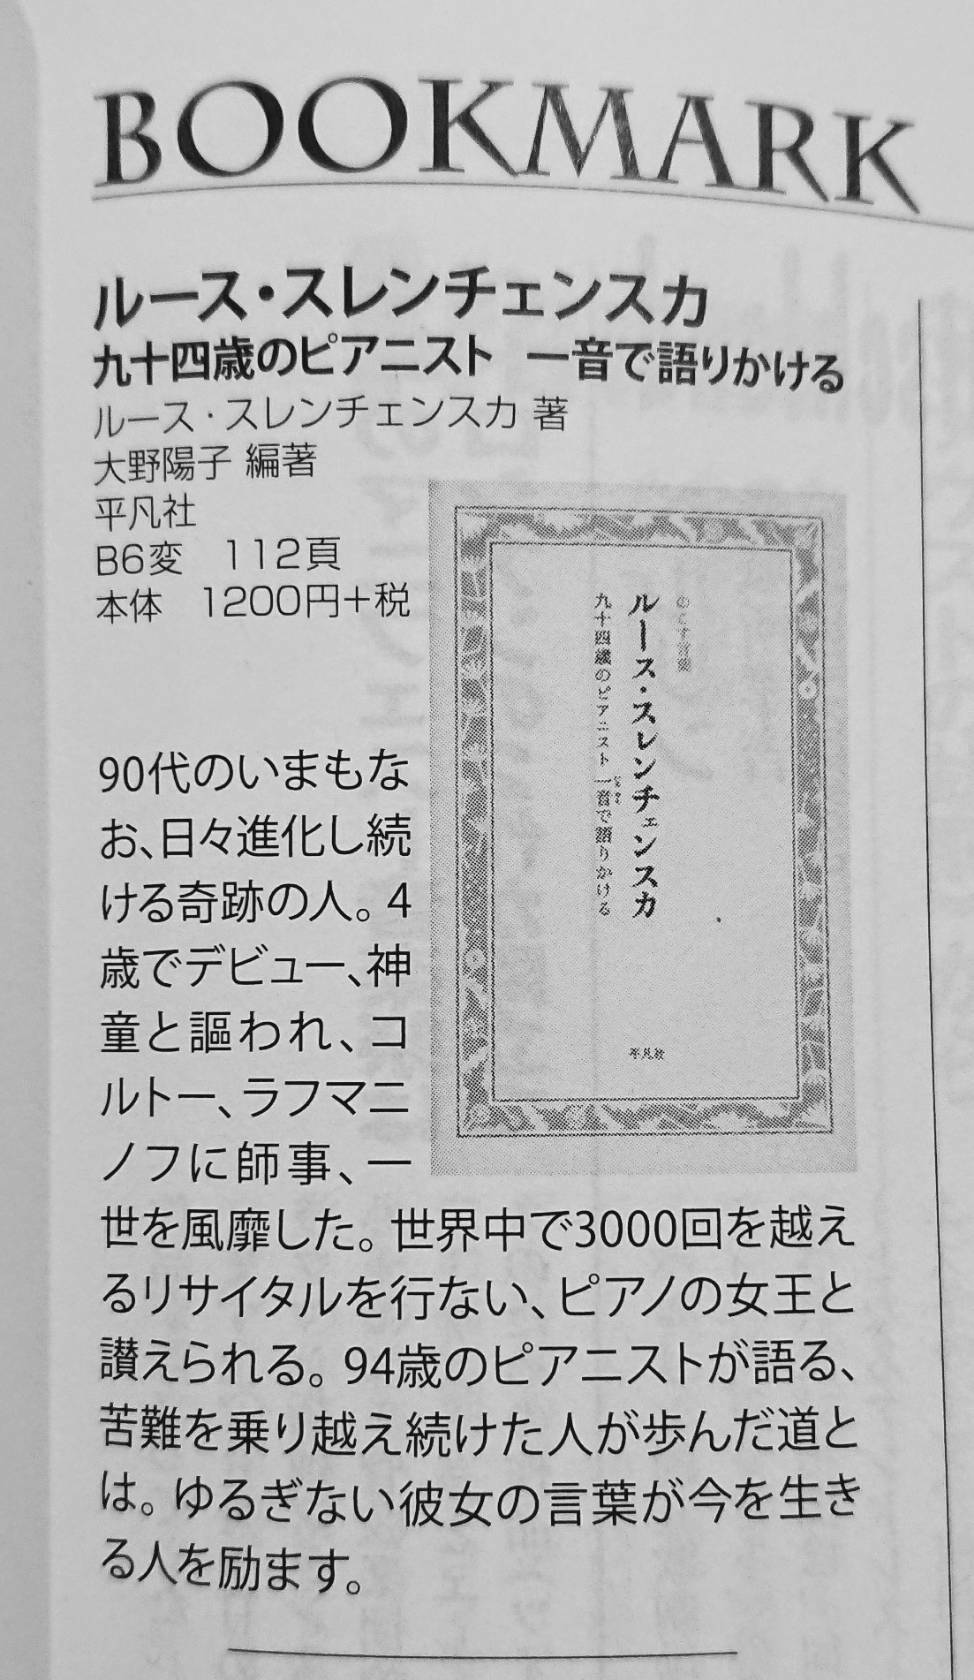 BOOKMARK
ルース・スレンチェンスカ
九十四歳のピアニスト　一音で語りかける
ルース・スレンチェンスカ 著
大野陽子 編著
平凡社
B6変　112頁
本体　1200円+税
のこす言葉
ルース・スレンチェンスカ
九十四歳のピアニスト 一音で語りかける
平凡社
90代のいまもな
お、日々進化し続
ける奇跡の人。4
歳でデビュー、神
童と謳われ、コ
ルトー、ラフマニ
ノフに師事、一
世を風靡した。世界中で3000回を越え
るリサイタルを行ない、ピアノの女王と
讃えられる。94歳のピアニストが語る、
苦難を乗り越え続けた人が歩んだ道と
は。ゆるぎない彼女の言葉が今を生き
る人を励ます。